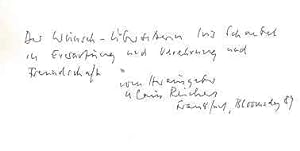 Der Wunsch-Übersetzerin Ina Schabert
in Erwartung und Verehrung und
Freundschaft
vom Herausgeber
Klaus Reichert
Frankfurt, Bloomsday 89